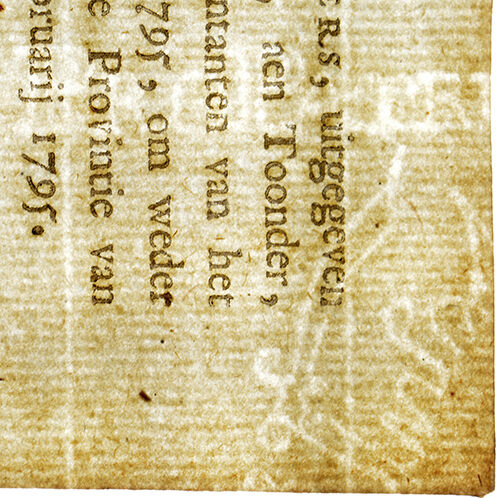 ERS, uitgegeven
aen Toonder,
ntanten van het
1795, om weder
e Provintie van
bruarij 1795.